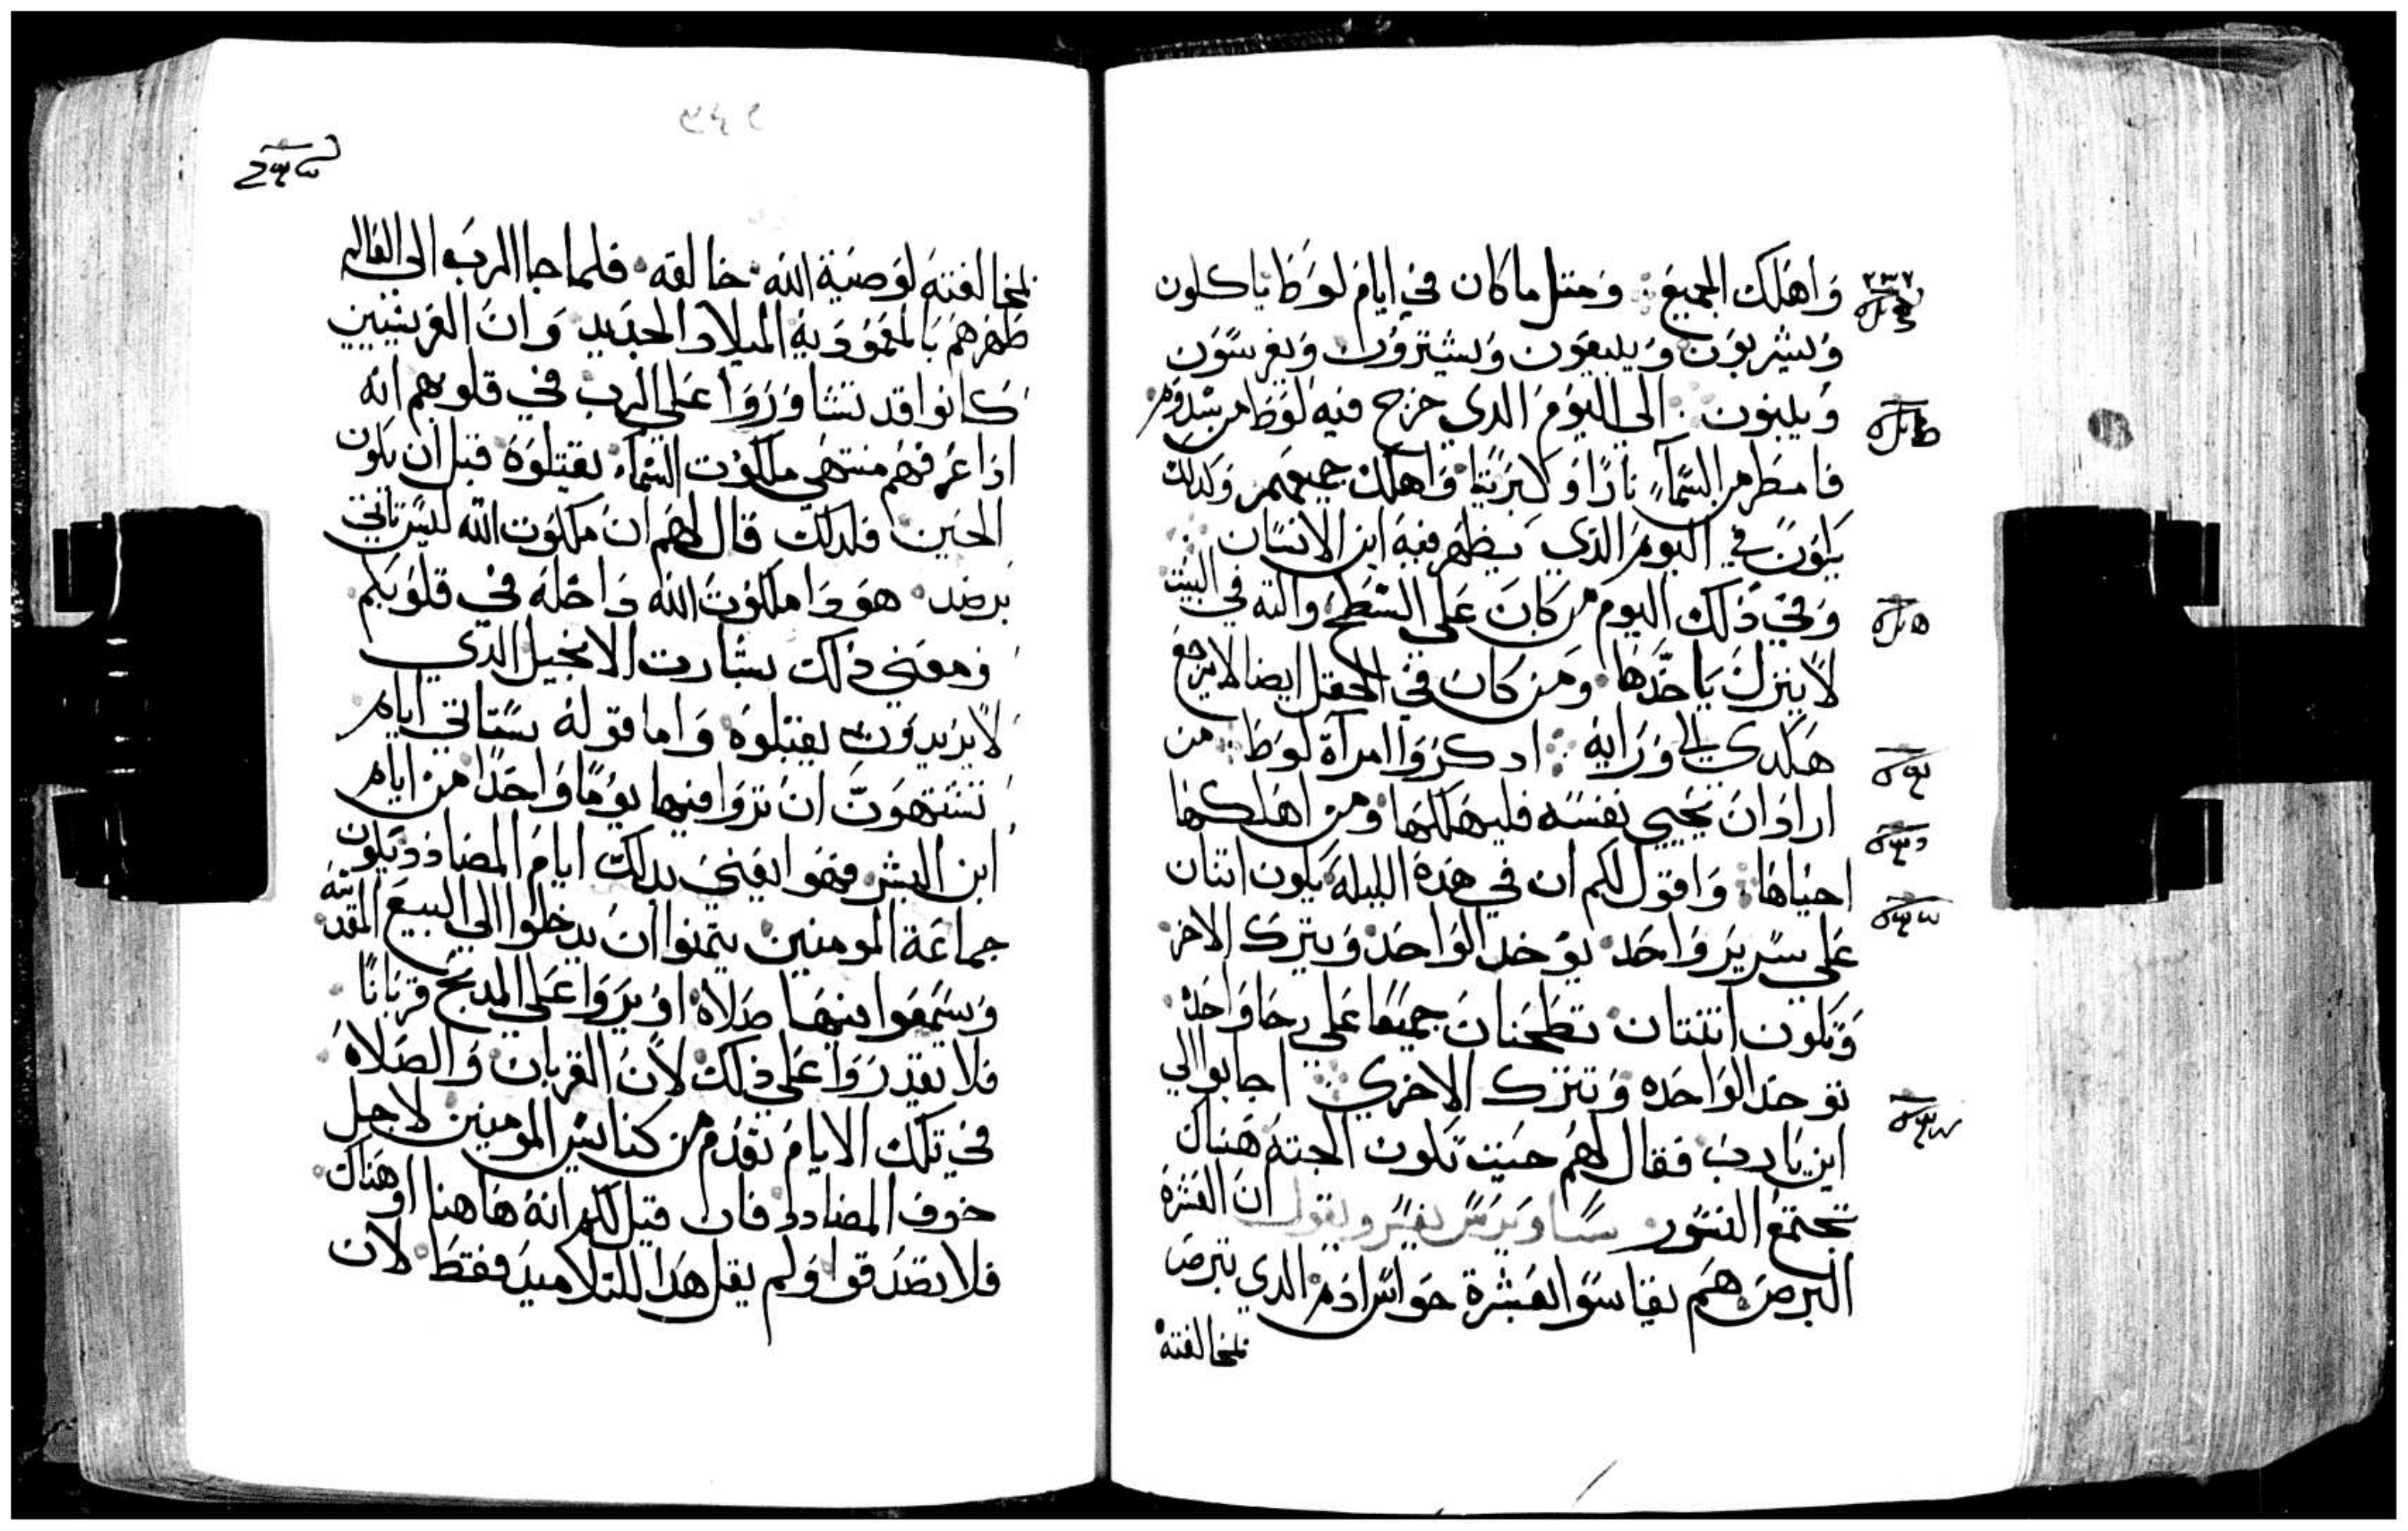 واهلك الجميع ومتل ما كان في ايام لوط ياكلون
ويشربون ويبيعون ويشترون ويغرسون
ويبنون الي اليوم الدي خرج فيه لوط من سدوم
فامطر من السماء نارًا وكبريتا واهلك جميعهم وكدلك
يكون في اليوم الذي يظهر فيه ابن الانسان
وفي ذلك اليوم من كان علي السطح والته في البيت
لا ينزل ياخدها ومن كان في الحقل ايضا لا يرجع
هكدي الي ورايه ادكروا امراة لوط من
اراد ان يحيي نفسه فليهلكها ومن اهلكها
احياها واقول لكم ان في هذه الليله يكون اتنان
علي سرير واحد يوخد الواحد ويترك الاخر
وتكون اتنتان تطحنان جميعا علي رحا واحده
توخد الواحده وتترك الاخري اجابوا الي
اين يارب فقال لهم حيت تكون الجته هناك
تجتمع النسور ساويرس يفسر ويقول ان العشرة
البرص هم يقاسوا بعشرة حواس ادم الدي تبرص
لمخالفته
لمخالفته لوصية الله خالقه فلما جا الرب الي العالم
طهرهم بالمعمودية الميلاد الجديد وان الفريسيين
كانوا قد تشاوروا علي الرب في قلوبهم انه
اذا عرفهم منتهي ملكوت السماء يقتلوه قبل ان يكون
الحين فلدلك قال لهم ان ملكوت الله ليس تاتي
برصد هو دا ملكوت الله داخله في قلوبكم
ومعني ذلك بشارت الانجيل الدي
لا يريدون يقبلوه واما قوله ستاتي ايام
تشتهون ان تروا فيها يومًا واحدًا من ايام
ابن البشر فهو يعني بدلك ايام المضادد يكون
جماعة المومنين يتمنوا ان يدخلوا الي البيع المقدسه
ويسمعوا فيها صلاه او يروا علي المدبح قربانًا
فلا يقدروا علي ذلك لان القربان والصلاه
في تلك الايام تعدم من كنايس المومنين لاجل
خوف المضادد فان قيل لكم انه هاهنا او هناك
فلا تصدقوا ولم يقل هدا للتلاميد فقط لان